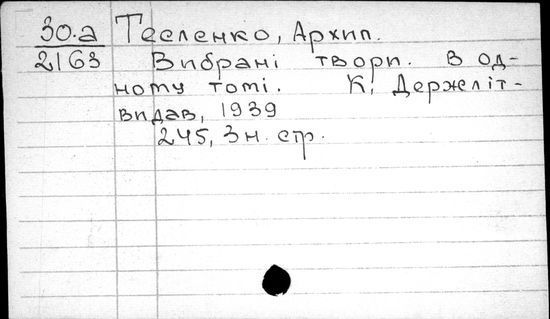 30.а Тесленко, Архип.
2163 Вибрані твори. В од-
ному томі. К, Держліт-
видав, 1939
245, 3 н. стр.